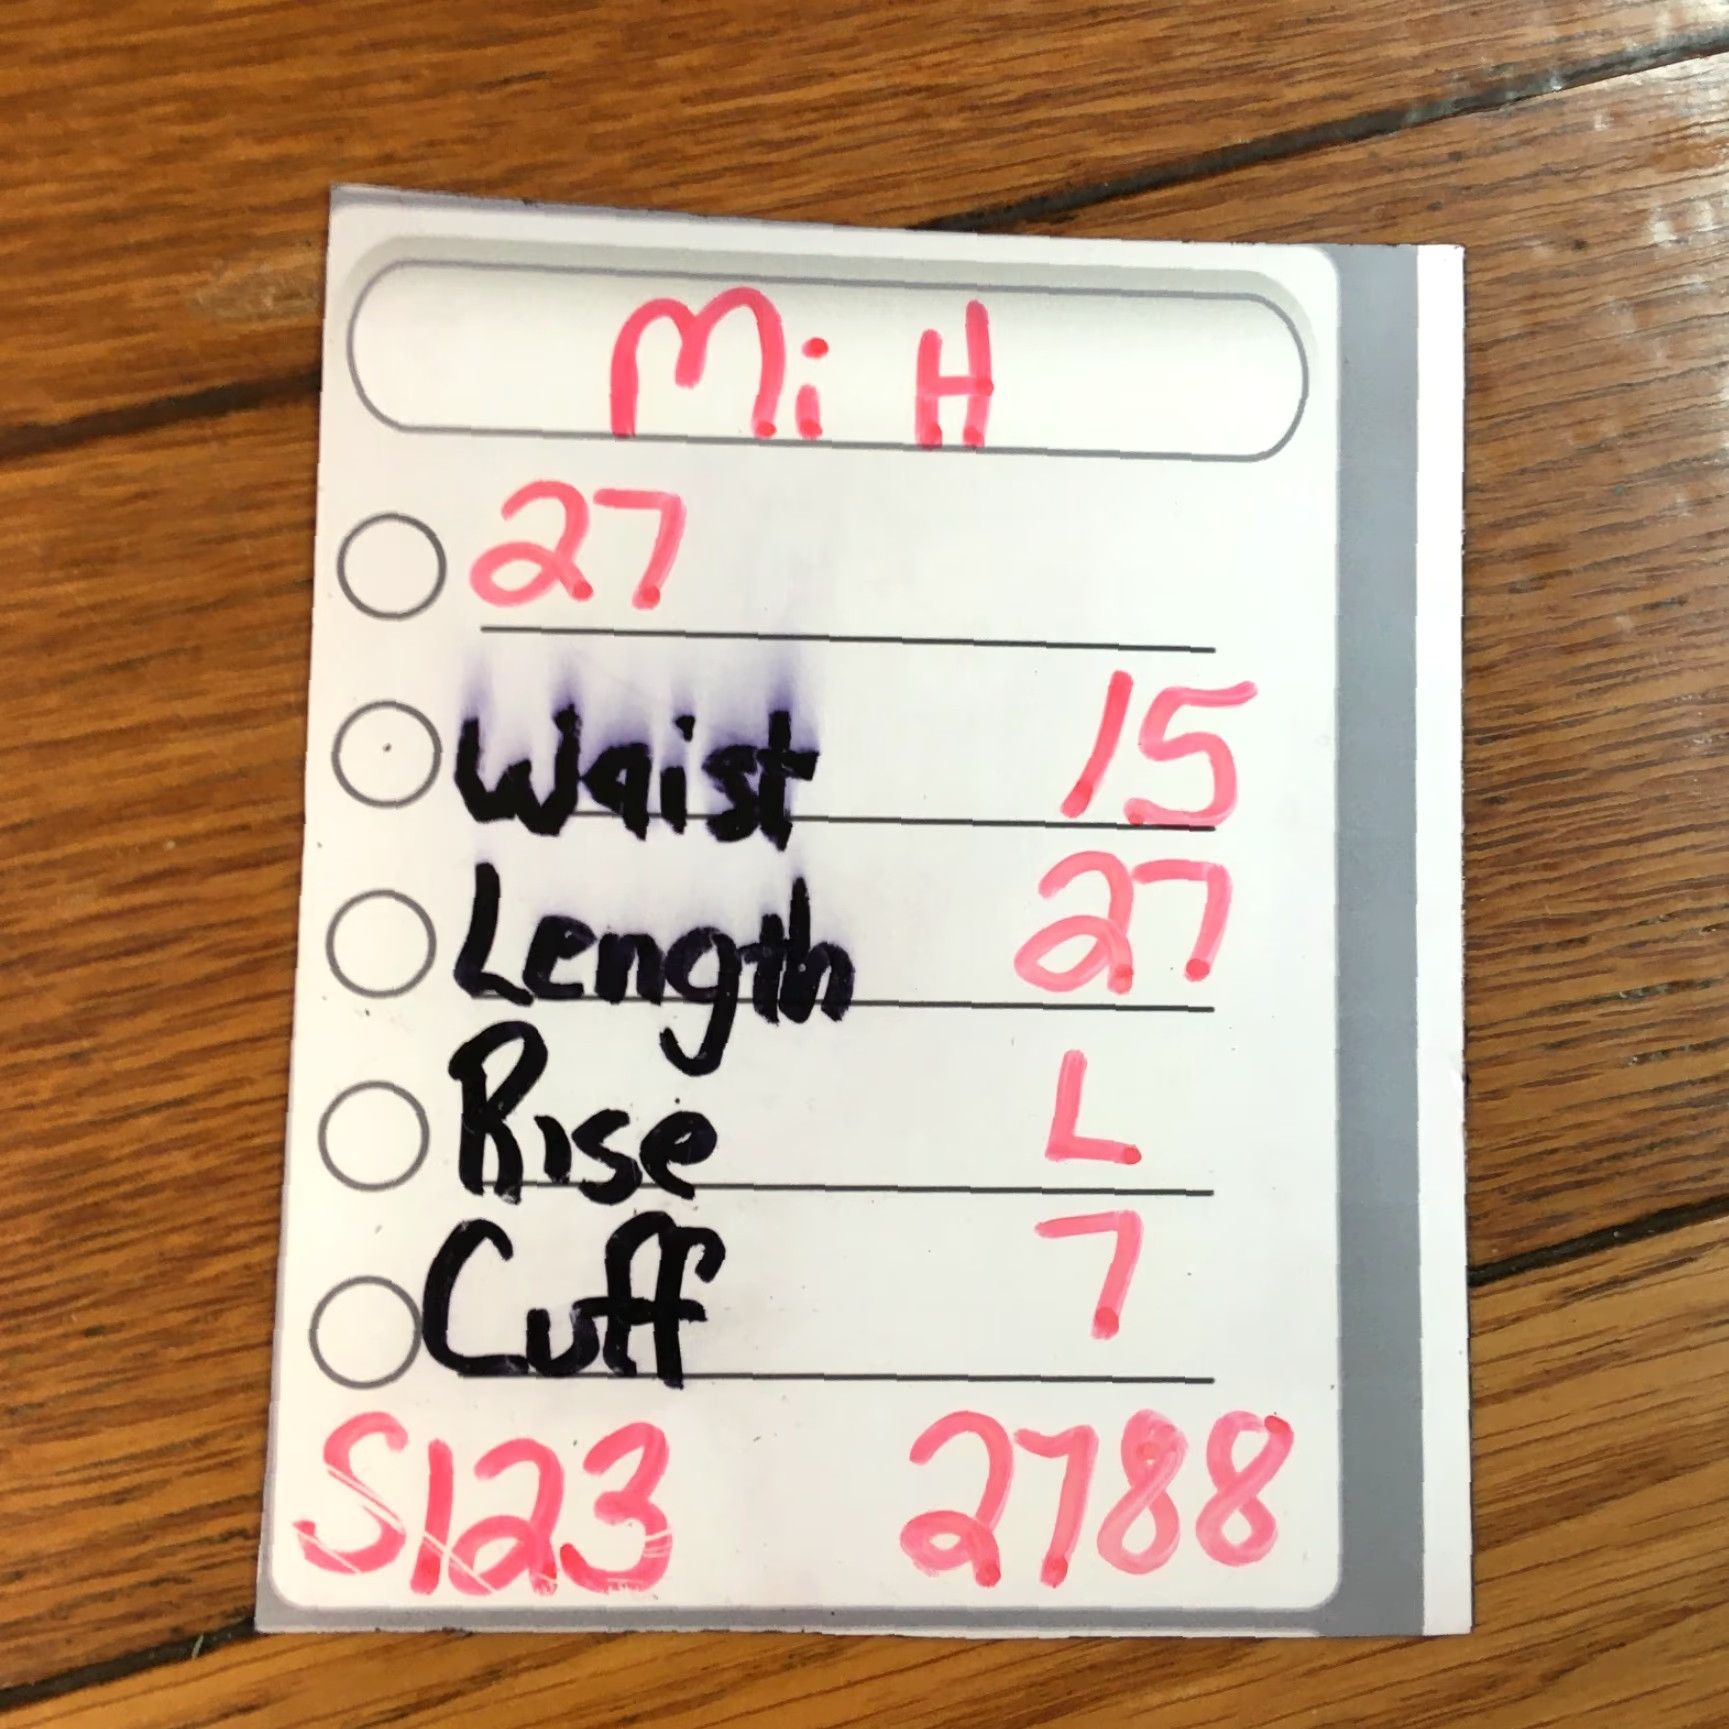 Mi H
27
Waist 15
Length 27
Rise L
Cuff 7
S123 2788